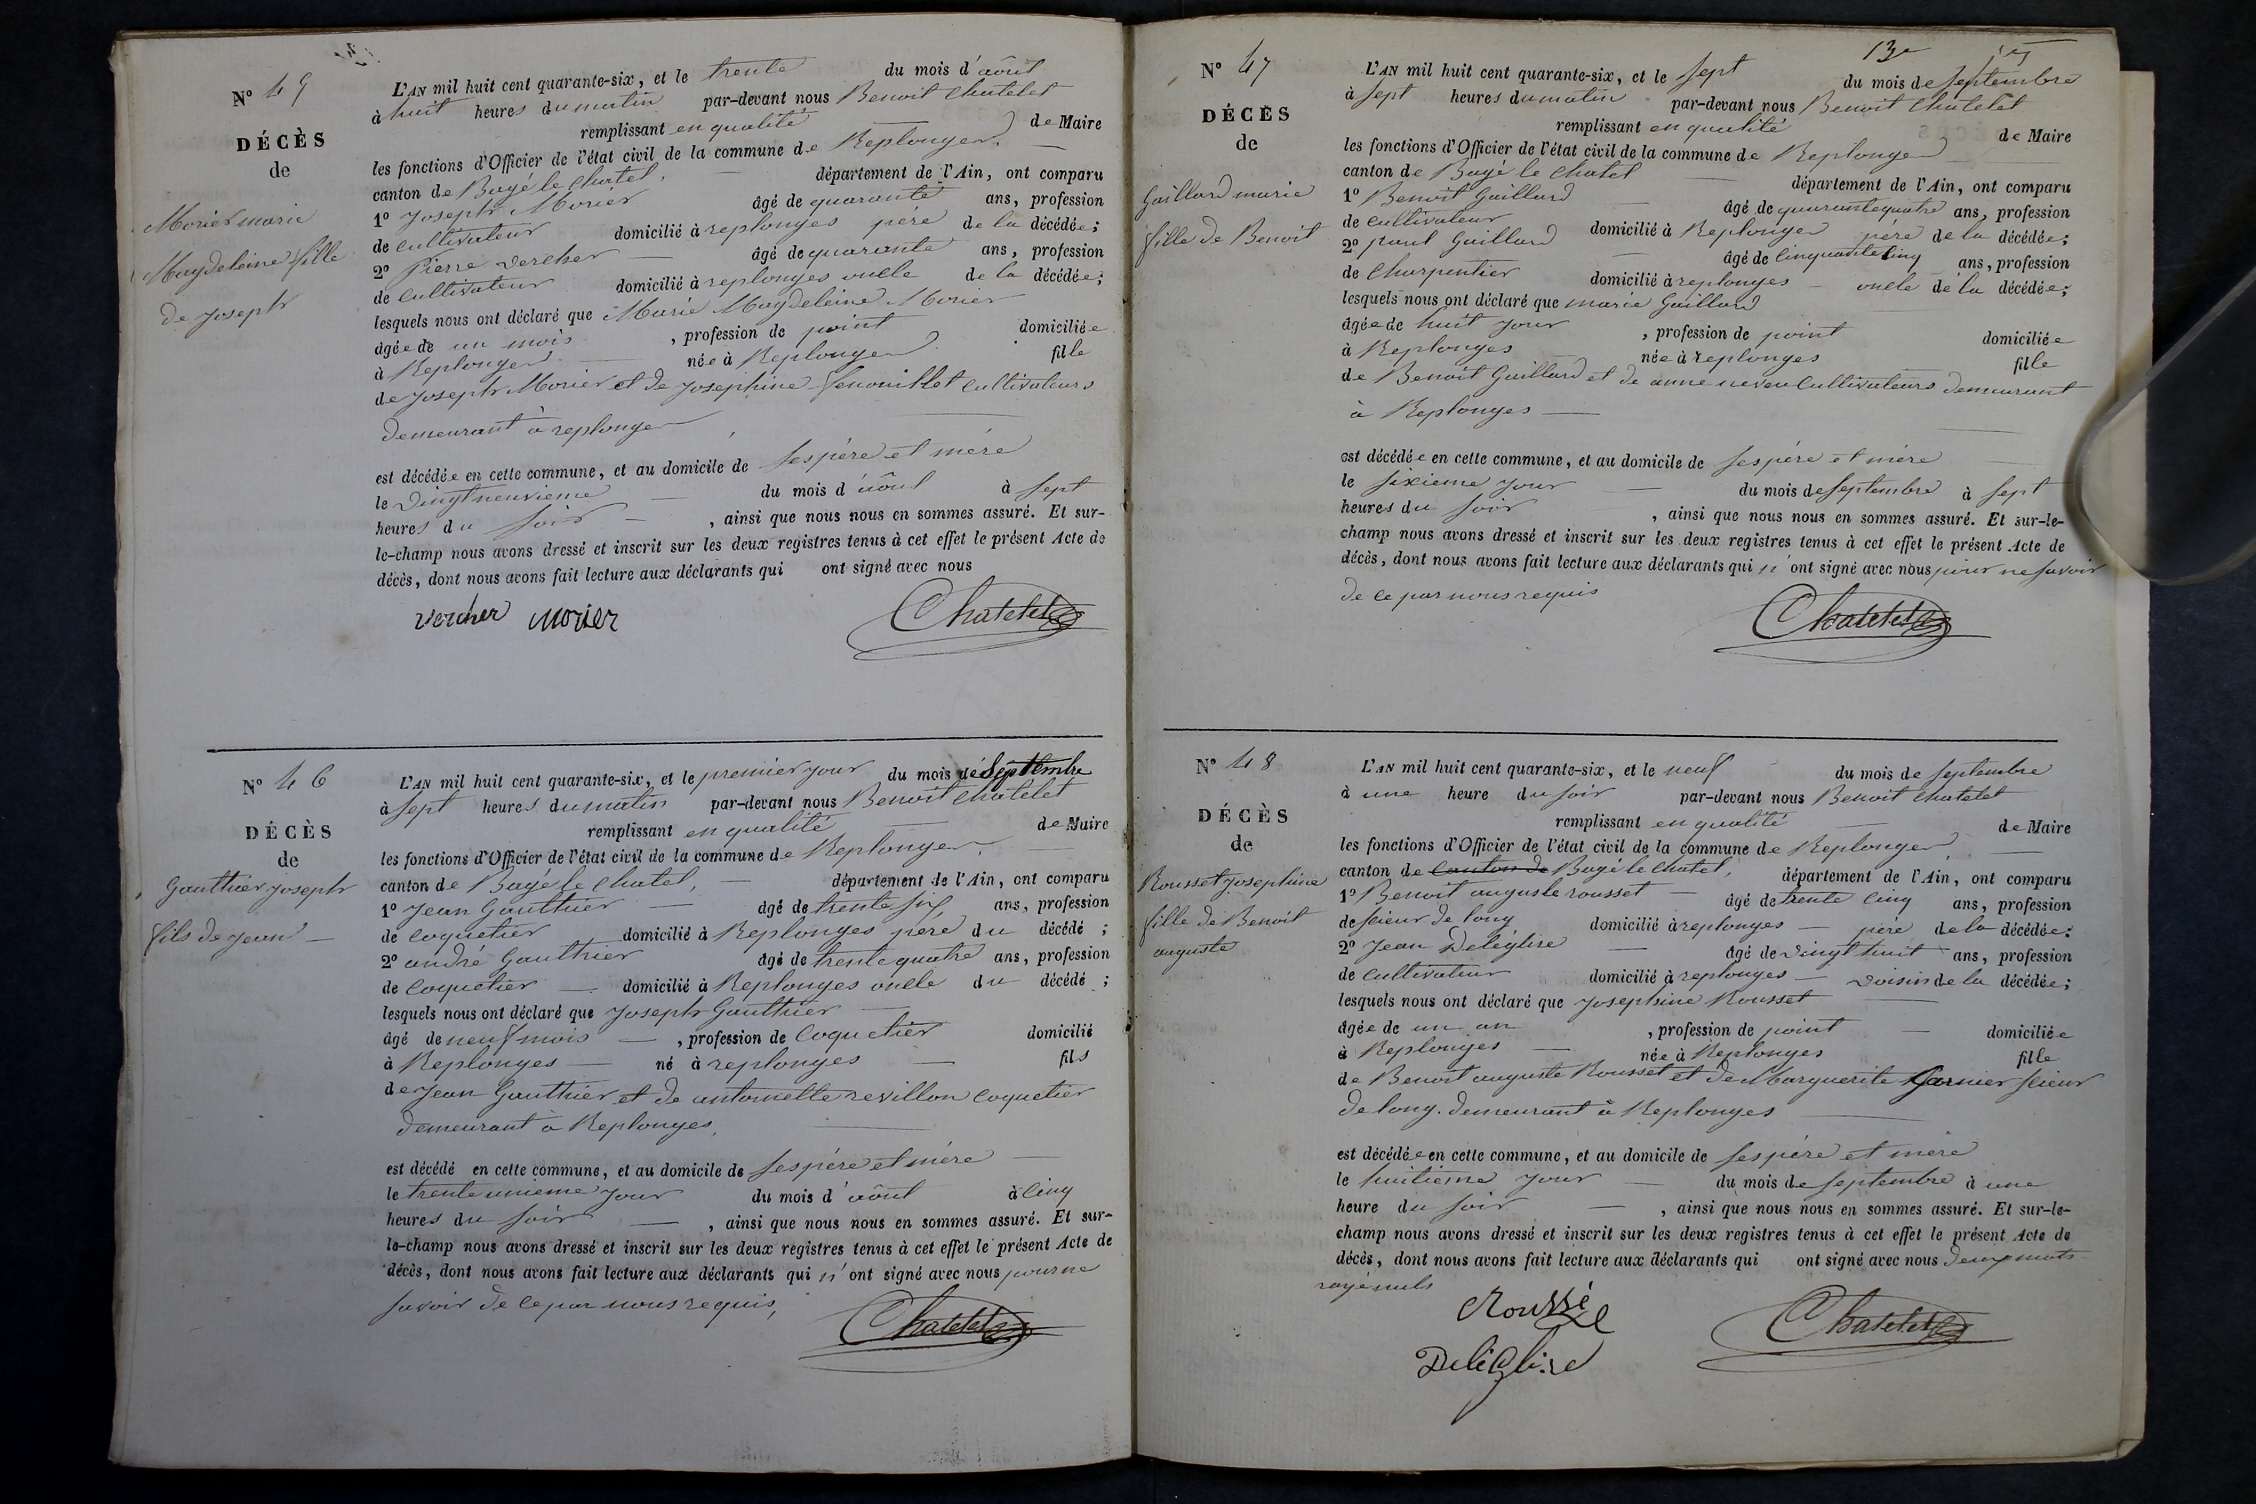 N° 45
DÉCÈS
de
Morier marie
Magdeleine fille
de joseph
L'AN mil huit cent quarante-six, et le trente du mois d'août
à huit heures du matin par-devant nous Benoit Chatelet
remplissant en qualité de Maire
les fonctions d'Officier de l'état civil de la commune de Replonges
canton de Bagé le Chatel, département de l'Ain, ont comparu
1° Joseph Morier âgé de quarante ans, profession
de cultivateur domicilié à replonges père de la décédée;
2° Pierre vercher âgé de quarante ans, profession
de cultivateur domicilié à replonges oncle de la décédée;
lesquels nous ont déclaré que Marie Magdeleine Morier
âgée de un mois, profession de point domiciliée
à Replonges née à Replonges fille
de Joseph Morier et de josephine fenouillet cultivateurs
demeurant à replonges
est décédée en cette commune, et au domicile de ses père et mère
le vingt neuvieme du mois d'août à sept
heures du soir, ainsi que nous nous en sommes assuré. Et sur-
le-champ nous avons dressé et inscrit sur les deux registres tenus à cet effet le présent Acte de
décès, dont nous avons fait lecture aux déclarants qui ont signé avec nous
vercher Morier Chatelet
N° 46
DÉCÈS
de
Gauthier joseph
fils de jean
L'AN mil huit cent quarante-six, et le premier jour du mois de Septembre
à sept heures du matin par-devant nous Benoit Chatelet
remplissant en qualité de Maire
les fonctions d'Officier de l'état civil de la commune de Replonges
canton de Bagé le Chatel, département de l'Ain, ont comparu
1° Jean Gauthier âgé de trente six ans, profession
de coquetier domicilié à Replonges père du décédé;
2° andré Gauthier âgé de trente quatre ans, profession
de coquetier domicilié à Replonges oncle du décédé;
lesquels nous ont déclaré que Joseph Gauthier
âgé de neuf mois, profession de coquetier domicilié
à Replonges né à replonges fils
de Jean Gauthier et de antoinette revillon coquetier
demeurant à Replonges,
est décédé en cette commune, et au domicile de ses père et mère
le trente unieme jour du mois d'août à cinq
heures du soir, ainsi que nous nous en sommes assuré. Et sur-
le-champ nous avons dressé et inscrit sur les deux registres tenus à cet effet le présent Acte de
décès, dont nous avons fait lecture aux déclarants qui n'ont signé avec nous pour ne
savoir de ce par nous requis,
Chatelet
13e
N° 47
DÉCÈS
de
Gaillard marie
fille de Benoit
L'AN mil huit cent quarante-six, et le sept du mois de septembre
à sept heures du matin par-devant nous Benoit Chatelet
remplissant en qualité de Maire
les fonctions d'Officier de l'état civil de la commune de Replonges
canton de Bagé le Chatel département de l'Ain, ont comparu
1° Benoit Gaillard âgé de quarante quatre ans, profession
de cultivateur domicilié à Replonges père de la décédée;
2° paul Gaillard âgé de cinquante cinq ans, profession
de charpentier domicilié à replonges oncle de la décédée;
lesquels nous ont déclaré que marie Gaillard
âgée de huit jour, profession de point domiciliée
à Replonges née à replonges fille
de Benoit Gaillard et de anne neveu cultivateurs demeurant
à Replonges
est décédée en cette commune, et au domicile de ses père et mère
le sixieme jour du mois de septembre à sept
heures du soir, ainsi que nous nous en sommes assuré. Et sur-le-
champ nous avons dressé et inscrit sur les deux registres tenus à cet effet le présent Acte de
décès, dont nous avons fait lecture aux déclarants qui n'ont signé avec nous pour ne savoir
de ce par nous requis
Chatelet
N° 48
DÉCÈS
de
Rousset josephine
fille de Benoit
auguste
L'AN mil huit cent quarante-six, et le neuf du mois de septembre
à une heure du soir par-devant nous Benoit Chatelet
remplissant en qualité de Maire
les fonctions d'Officier de l'état civil de la commune de Replonges
canton de canton de Bagé le Chatel, département de l'Ain, ont comparu
1° Benoit auguste rousset âgé de trente cinq ans, profession
de scieur de long domicilié à replonges père de la décédée;
2° Jean Deléglise âgé de vingt huit ans, profession
de cultivateur domicilié à replonges voisin de la décédée;
lesquels nous ont déclaré que josephine Rousset
âgée de un an, profession de point domiciliée
à Replonges née à Replonges fille
de Benoit auguste Rousset et de Marguerite Garnier scieur
de long demeurant à Replonges
est décédée en cette commune, et au domicile de ses père et mère
le huitieme jour du mois de septembre à une
heure du soir, ainsi que nous nous en sommes assuré. Et sur-le-
champ nous avons dressé et inscrit sur les deux registres tenus à cet effet le présent Acte de
décès, dont nous avons fait lecture aux déclarants qui ont signé avec nous deux mots
rayé nuls
Roussé Chatelet
Deléglise